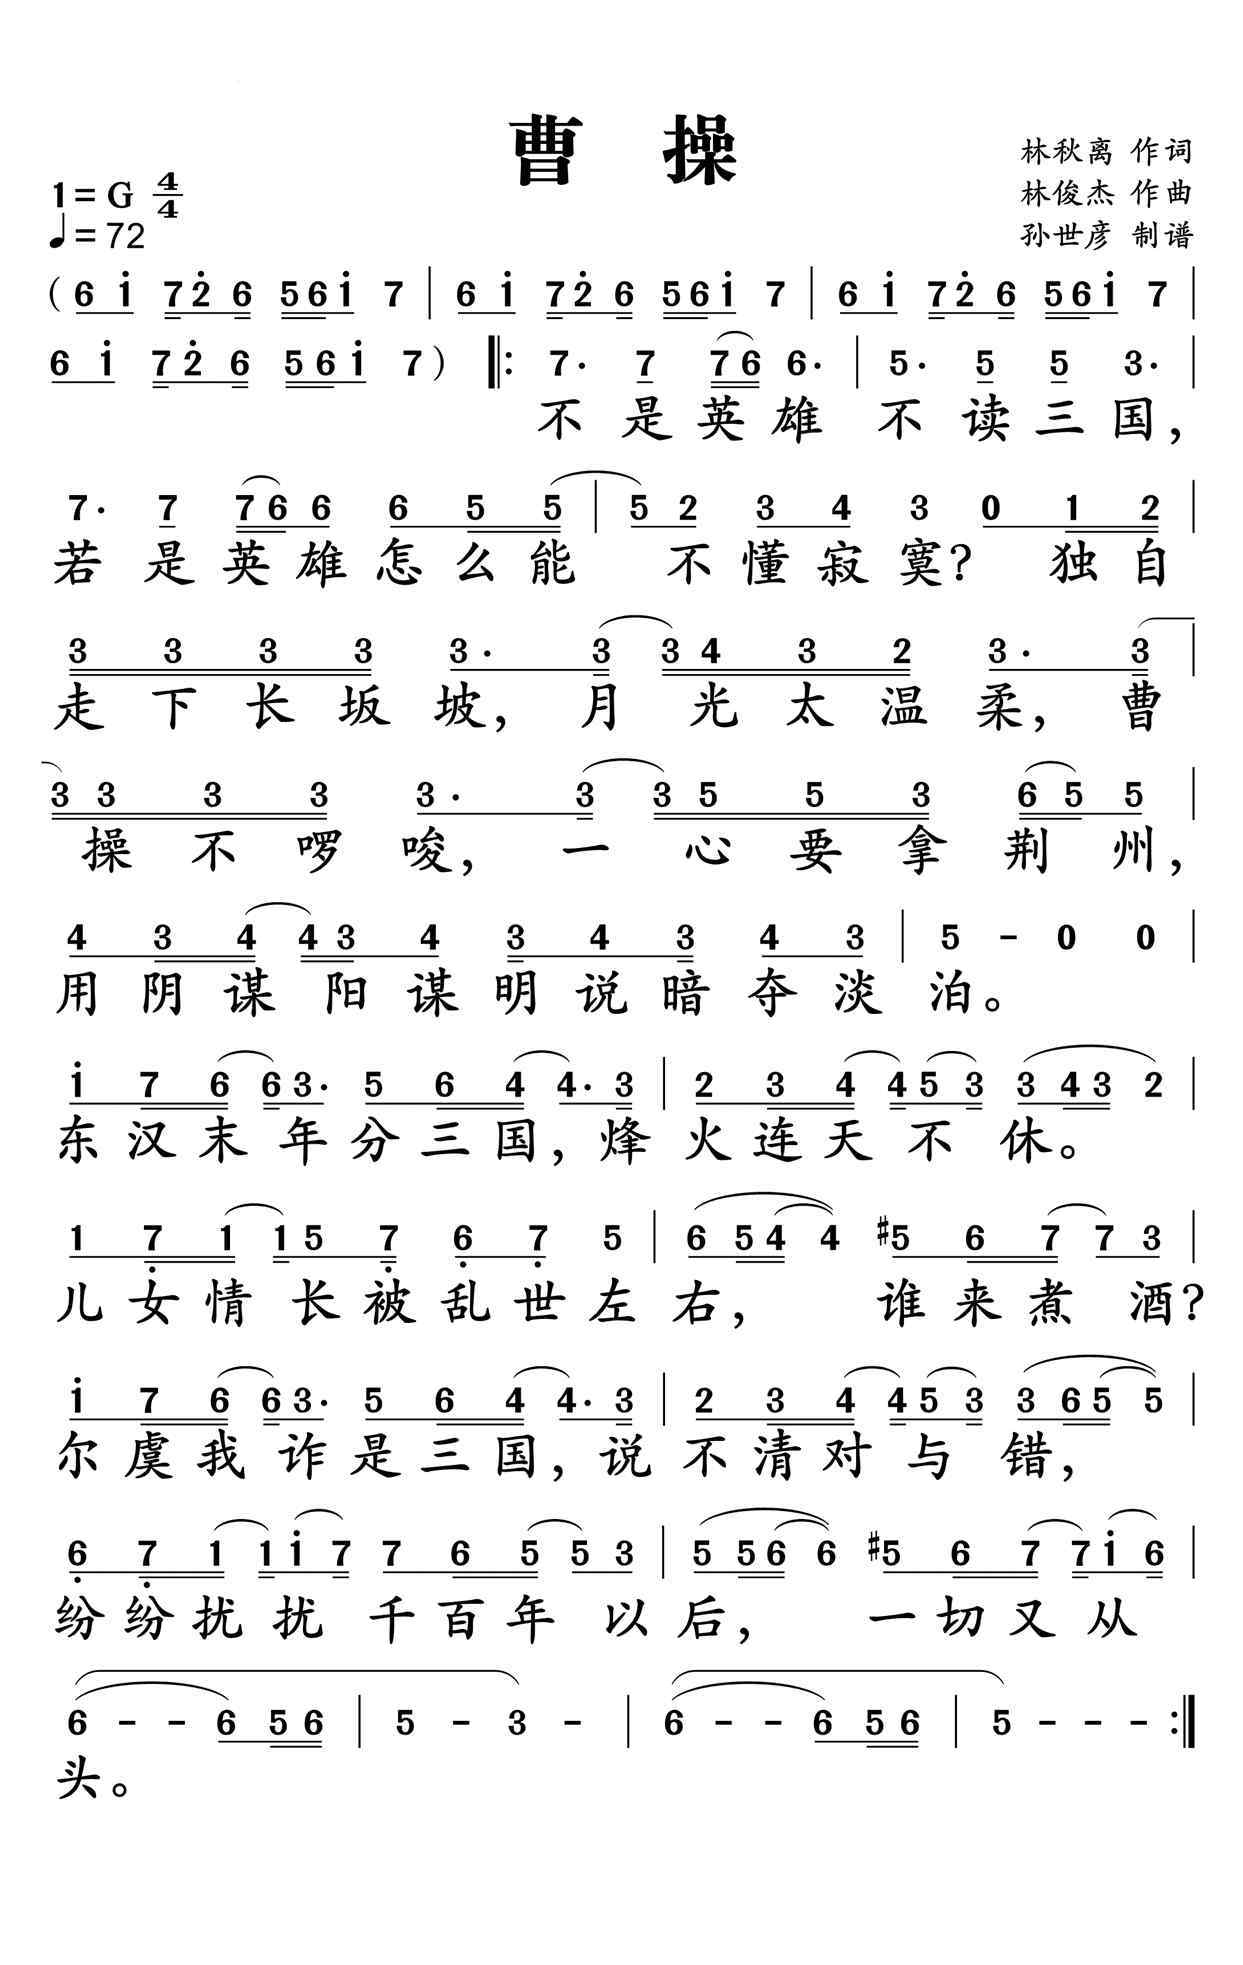 曹 操
林秋离 作词
林俊杰 作曲
孙世彦 制谱
1= G 4/4
♩= 72
(6 i 7 2 6 5 6 i 7 | 6 i 7 2 6 5 6 i 7 | 6 i 7 2 6 5 6 i 7 |
6 i 7 2 6 5 6 i 7 ) ‖: 7. 7 7 6 6. | 5. 5 5 3. |
不是英雄 不读三国,
7. 7 7 6 6 6 5 5 | 5 2 3 4 3 0 1 2 |
若是英雄怎么能 不懂寂寞? 独自
3 3 3 3 3. 3 3 4 3 2 3. 3 |
走下长坂坡, 月光太温柔, 曹
3 3 3 3 3. 3 3 5 5 3 6 5 5 |
操不啰唆, 一心要拿荆州,
4 3 4 4 3 4 3 4 3 4 3 | 5 - 0 0 |
用阴谋阳谋明说暗夺淡泊。
i 7 6 6 3. 5 6 4 4. 3 | 2 3 4 4 5 3 3 4 3 2 |
东汉末年分三国, 烽火连天不休。
1 7 1 1 5 7 6 7 5 | 6 5 4 4 #5 6 7 7 3 |
儿女情长被乱世左右, 谁来煮酒?
i 7 6 6 3. 5 6 4 4. 3 | 2 3 4 4 5 3 3 6 5 5 |
尔虞我诈是三国, 说不清对与错,
6 7 1 1 i 7 7 6 5 5 3 | 5 5 6 6 #5 6 7 7 i 6 |
纷纷扰扰千百年以后, 一切又从
6 - - 6 5 6 | 5 - 3 - | 6 - - 6 5 6 | 5 - - - :‖
头。